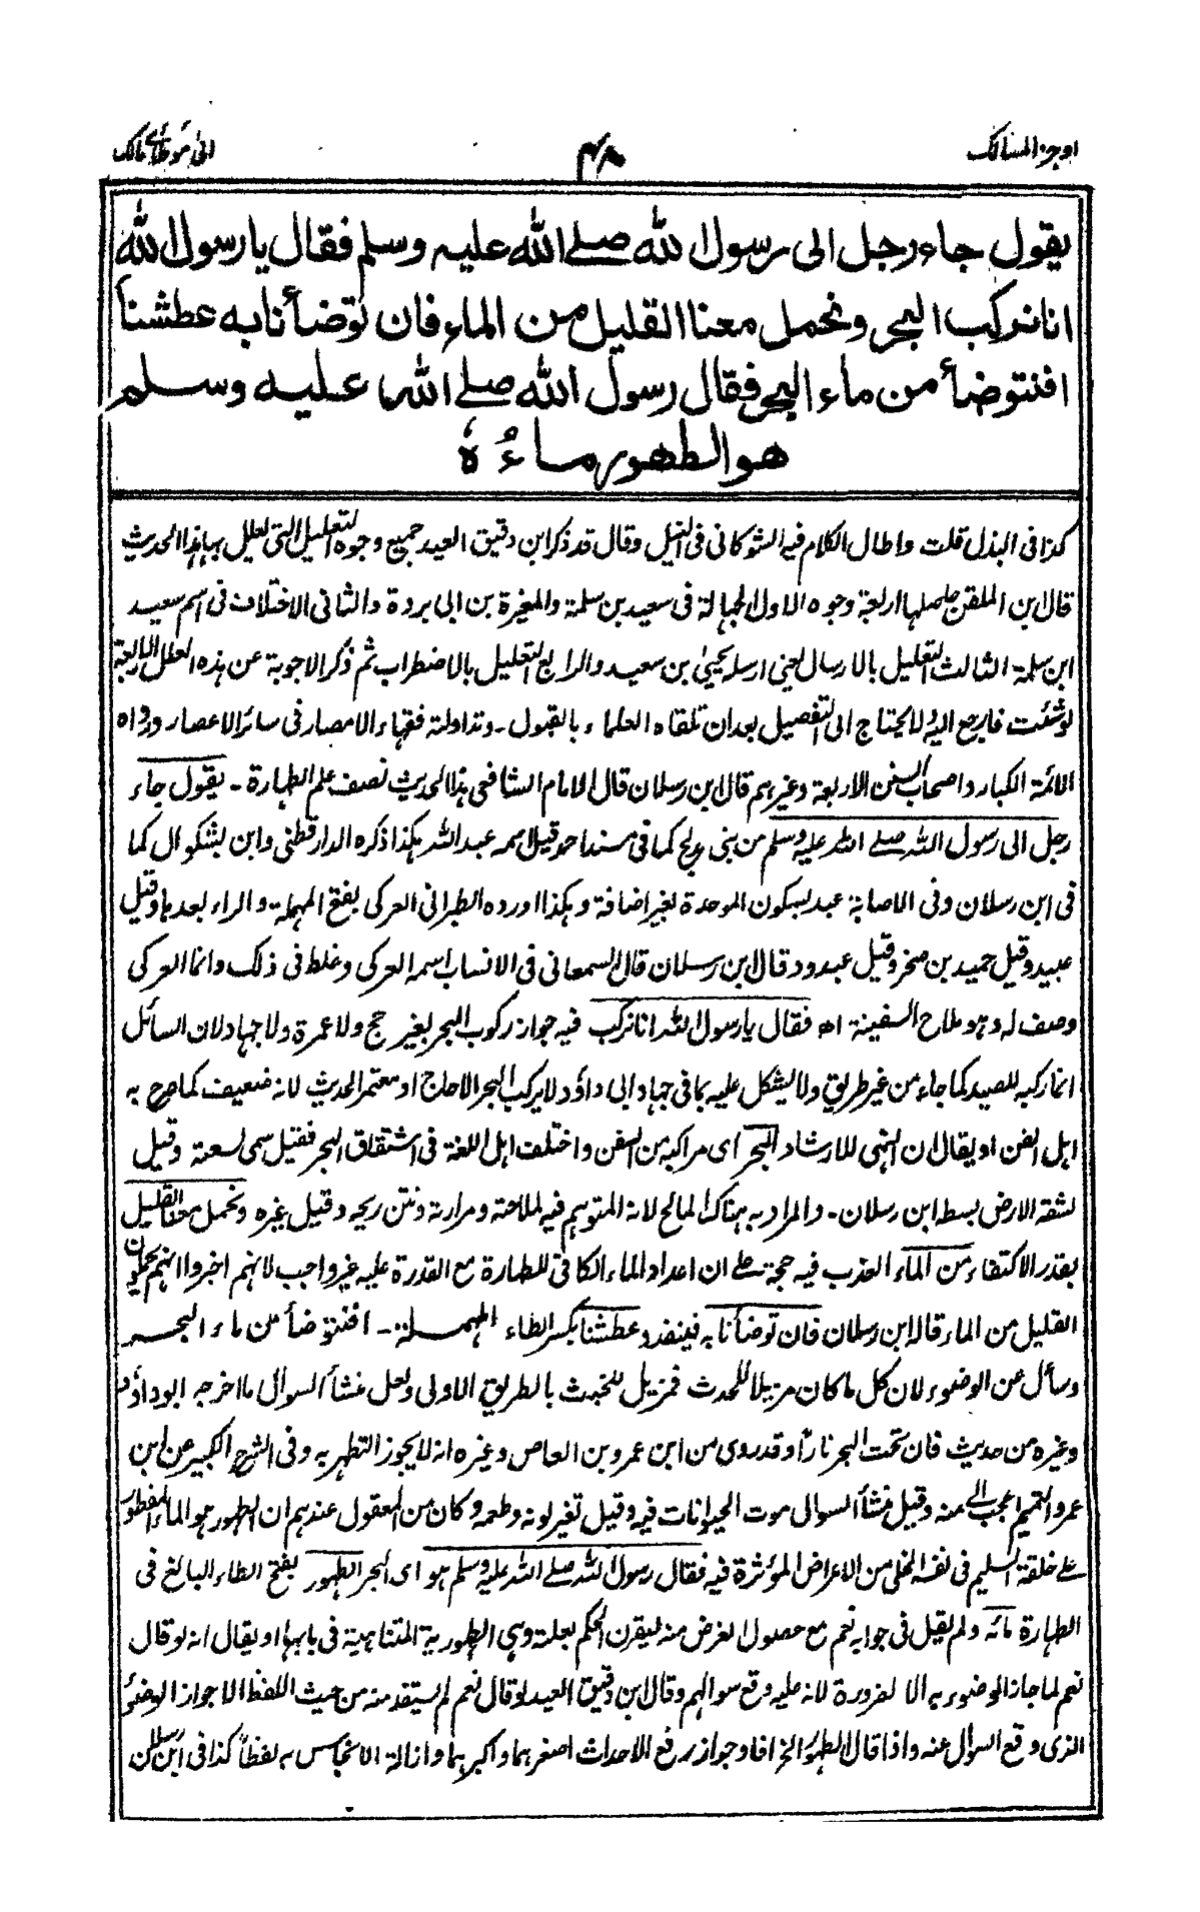 اوجز المسالك
٤٨
الى موطأ مالك
يقول جاء رجل الى رسول الله صلے الله عليه وسلم فقال يا رسول الله
انا نركب البحر ونحمل معنا القليل من الماء فان توضأنا به عطشنا
افنتوضأ من ماء البحر فقال رسول الله صلے الله عليه وسلم
هو الطهور ماءُهٗ
كذا فى البذل قلت واطال الكلام فيه الشوكانى فى النيل وقال قد ذكر ابن دقيق العيد جميع وجوه التعليل التى تعلل بها هذا الحديث
قال ابن الملقن حاصلها اربعة وجوه الاول الجهالة فى سعيد بن سلمة والمغيرة بن ابى بردة والثانى الاختلاف فى اسم سعيد
ابن سلمة الثالث التعليل بالارسال يعنى ارسله يحيىٰ بن سعيد والرابع التعليل بالاضطراب ثم ذكر الاجوبة عن هذه العلل الاربعة
لو شئت فارجع اليه لا يحتاج الى التفصيل بعد ان تلقاه العلماء بالقبول ۔ وتداولته فقهاء الامصار فى سائر الاعصار ورواه
الائمة الكبار واصحاب السنن الاربعة وغيرهم قال ابن رسلان قال الامام الشافعى هذا الحديث نصف علم الطهارة ۔ يقول جاء
رجل الى رسول الله صلے الله عليه وسلم من بنى مدلج كما فى مسند احمد قيل اسمه عبد الله هكذا ذكره الدارقطنى وابن بشكوال كما
فى ابن رسلان وفى الاصابة عبد بسكون الموحدة بغير اضافة وهكذا اورده الطبرانى العركى بفتح المهملة والراء بعدها وقيل
عبيد وقيل حميد بن صخر وقيل عبدود قال ابن رسلان قال السمعانى فى الانساب اسمه العركى وغلط فى ذلك وانما العركى
وصف له وهو ملاح السفينة اھ فقال يا رسول الله انا نركب فيه جواز ركوب البحر بغير حج ولا عمرة ولا جهاد لان السائل
انما ركبه للصيد كما جاء من غير طريق ولا يشكل عليه بما فى جهاد ابى داؤد لا يركب البحر الا حاج او معتمر الحديث لانه ضعيف كما صرح به
اهل الفن او يقال ان النهى للارشاد البحر اى مراكبه من السفن واختلف اهل اللغة فى اشتقاق البحر فقيل سمى لسعته وقيل
لشقه الارض بسط ابن رسلان ۔ والمراد به هناك المالح لانه المتوهم فيه لملاحته ومرارته ونتن ريحه وقيل غيره ونحمل معنا القليل
بقدر الاكتفاء من الماء العذب فيه حجة علے ان اعداد الماء الكافى للطهارة مع القدرة عليه غير واجب لانهم اخبروا انهم يحملون
القليل من الماء قاله ابن رسلان فان توضأنا به فينفد وعطشنا بكسر الطاء المهملة ۔ افنتوضأ من ماء البحر
وسأل عن الوضوء لان كل ما كان مزيلا للحدث فمزيل للخبث بالطريق الاولى ولعل منشأ السوال ما اخرجه ابو داؤد
وغيره من حديث فان تحت البحر نارًا وقد روى من ابن عمرو بن العاص وغيره انه لا يجوز التطهر به وفى الشرح الكبير عن ابن
عمر والتيمم اعجب الى منه وقيل منشأ السوال موت الحيوانات فيه وقيل تغير لونه وطعمه وكان من المعقول عندهم ان الطهور هو الماء المفطور
علے خلقة السليم فى نفسه الخلى من الاعراض المؤثرة فيه فقال رسول الله صلے الله عليه وسلم هو اى البحر الطهور بفتح الطاء البالغ فى
الطهارة مائه ولم يقل فى جوابه نعم مع حصول الغرض منه ليقرن الحكم بعلته وهى الطهورية المتناهية فى بابها او يقال انه لو قال
نعم لما جاز الوضوء به الا لضرورة لانه عليه وقع سوالهم وقال ابن دقيق العيد لو قال نعم لم يستفد منه من حيث اللفظ الا جواز الوضوء
الذى وقع السوال عنه واذا قال الطهور الخ افاد جواز رفع الاحداث اصغرها واكبرها وازالة الانجاس به لفظاً كذا فى ابن رسلان